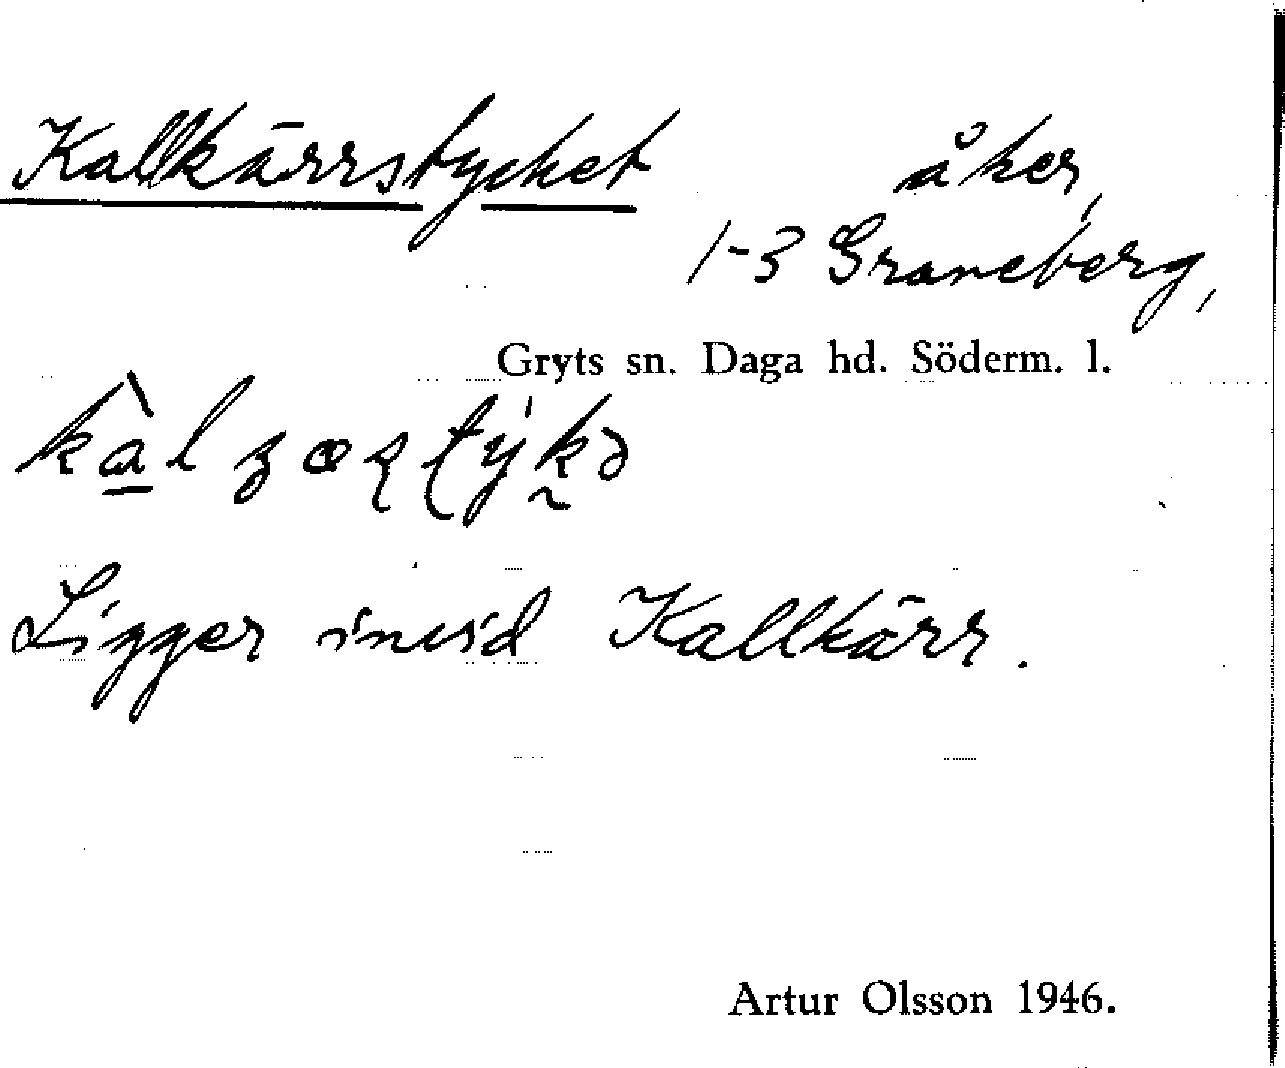 Kallkärrstycket åker,
1-3 Graneberg,
Gryts sn. Daga hd. Söderm. l.
Ligger invid Kallkärr.
Artur Olsson 1946.